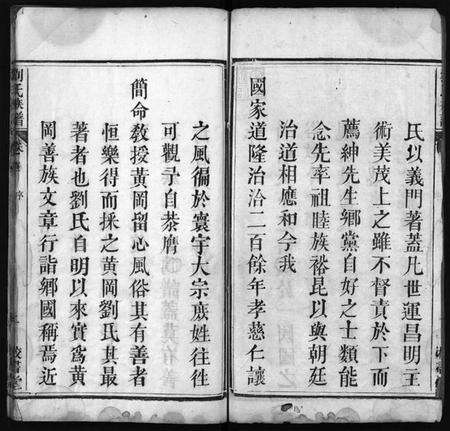 氏以義門著蓋凡世運昌明主
術美茂上之雖不督責於下而
薦紳先生鄉黨自好之士類能
念先率祖睦族裕昆以與朝廷
治道相應和今我
國家道隆治洽二百餘年孝慈仁讓
之風徧於寰宇大宗庶姓往往
可觀予自茶膺
簡命敎授黃岡留心風俗其有善者
恒樂得而採之黃岡劉氏其最
著者也劉氏自明以來實爲黃
岡善族文章行誼鄉國稱焉近
劉氏族譜
序